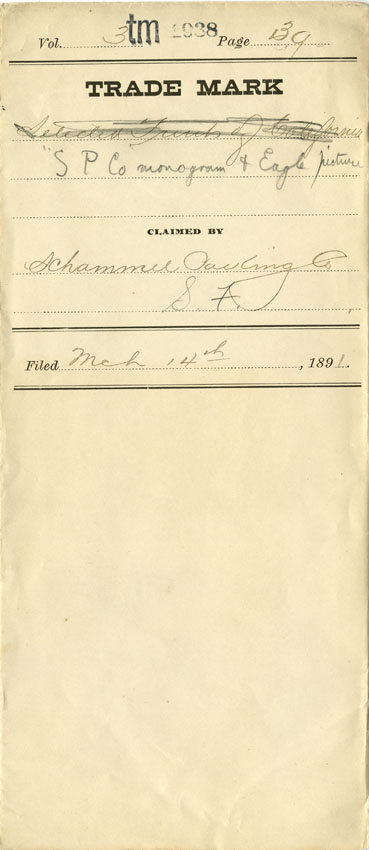 Vol. 3 tm 1938 Page 39
TRADE MARK
Selected Fruits of California
"S P Co monogram & Eagle picture
CLAIMED BY
Schammel Packing Co
S. F.
Filed Mch 14th, 1891.